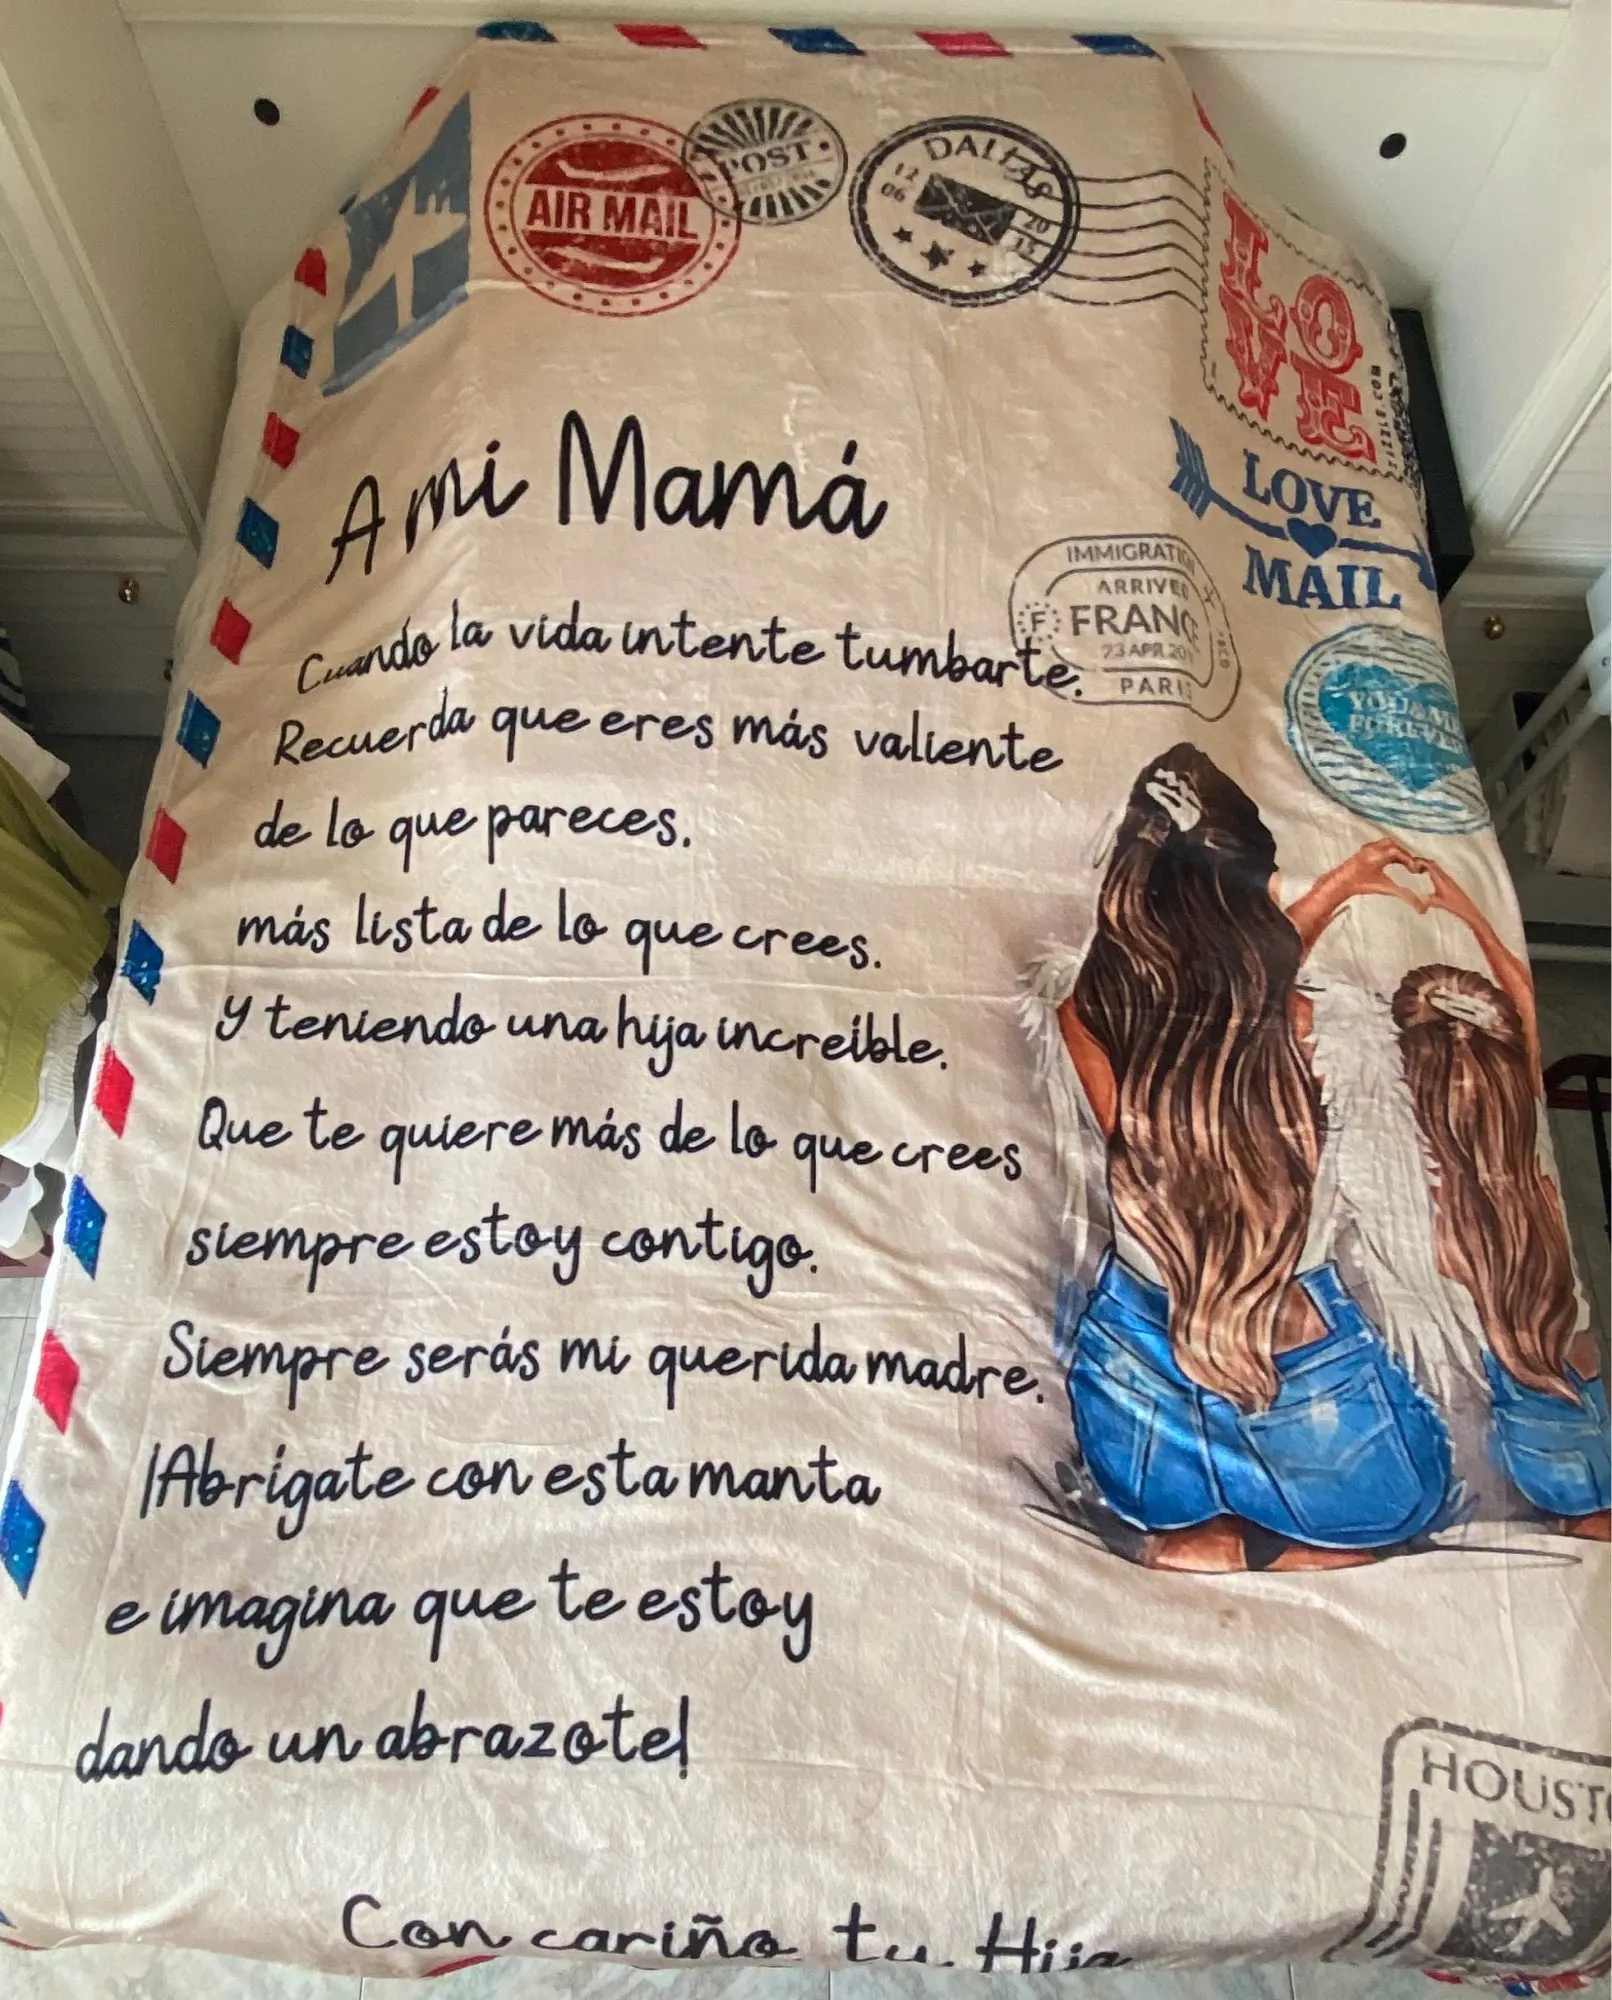 AIR MAIL
POST
DALLAS
12
06
20
15
LOVE
LOVE
MAIL
A mi Mamá
IMMIGRATI
ARRIVED
F FRANC
23 APR 20
PARIS
Cuando la vida intente tumbarte.
Recuerda que eres más valiente
de lo que pareces.
YOU & ME
FOREVER
más lista de lo que crees.
y teniendo una hija increíble.
Que te quiere más de lo que crees
siempre estoy contigo.
Siempre serás mi querida madre.
¡Abrígate con esta manta
e imagina que te estoy
dando un abrazote!
HOUSTO
Con cariño tu Hija